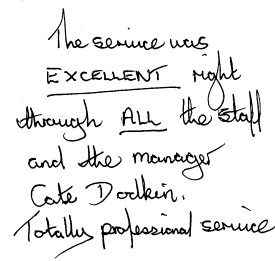 The service was
EXCELLENT right
through ALL the staff
and the manager
Cate Dodkin.
Totally professional service